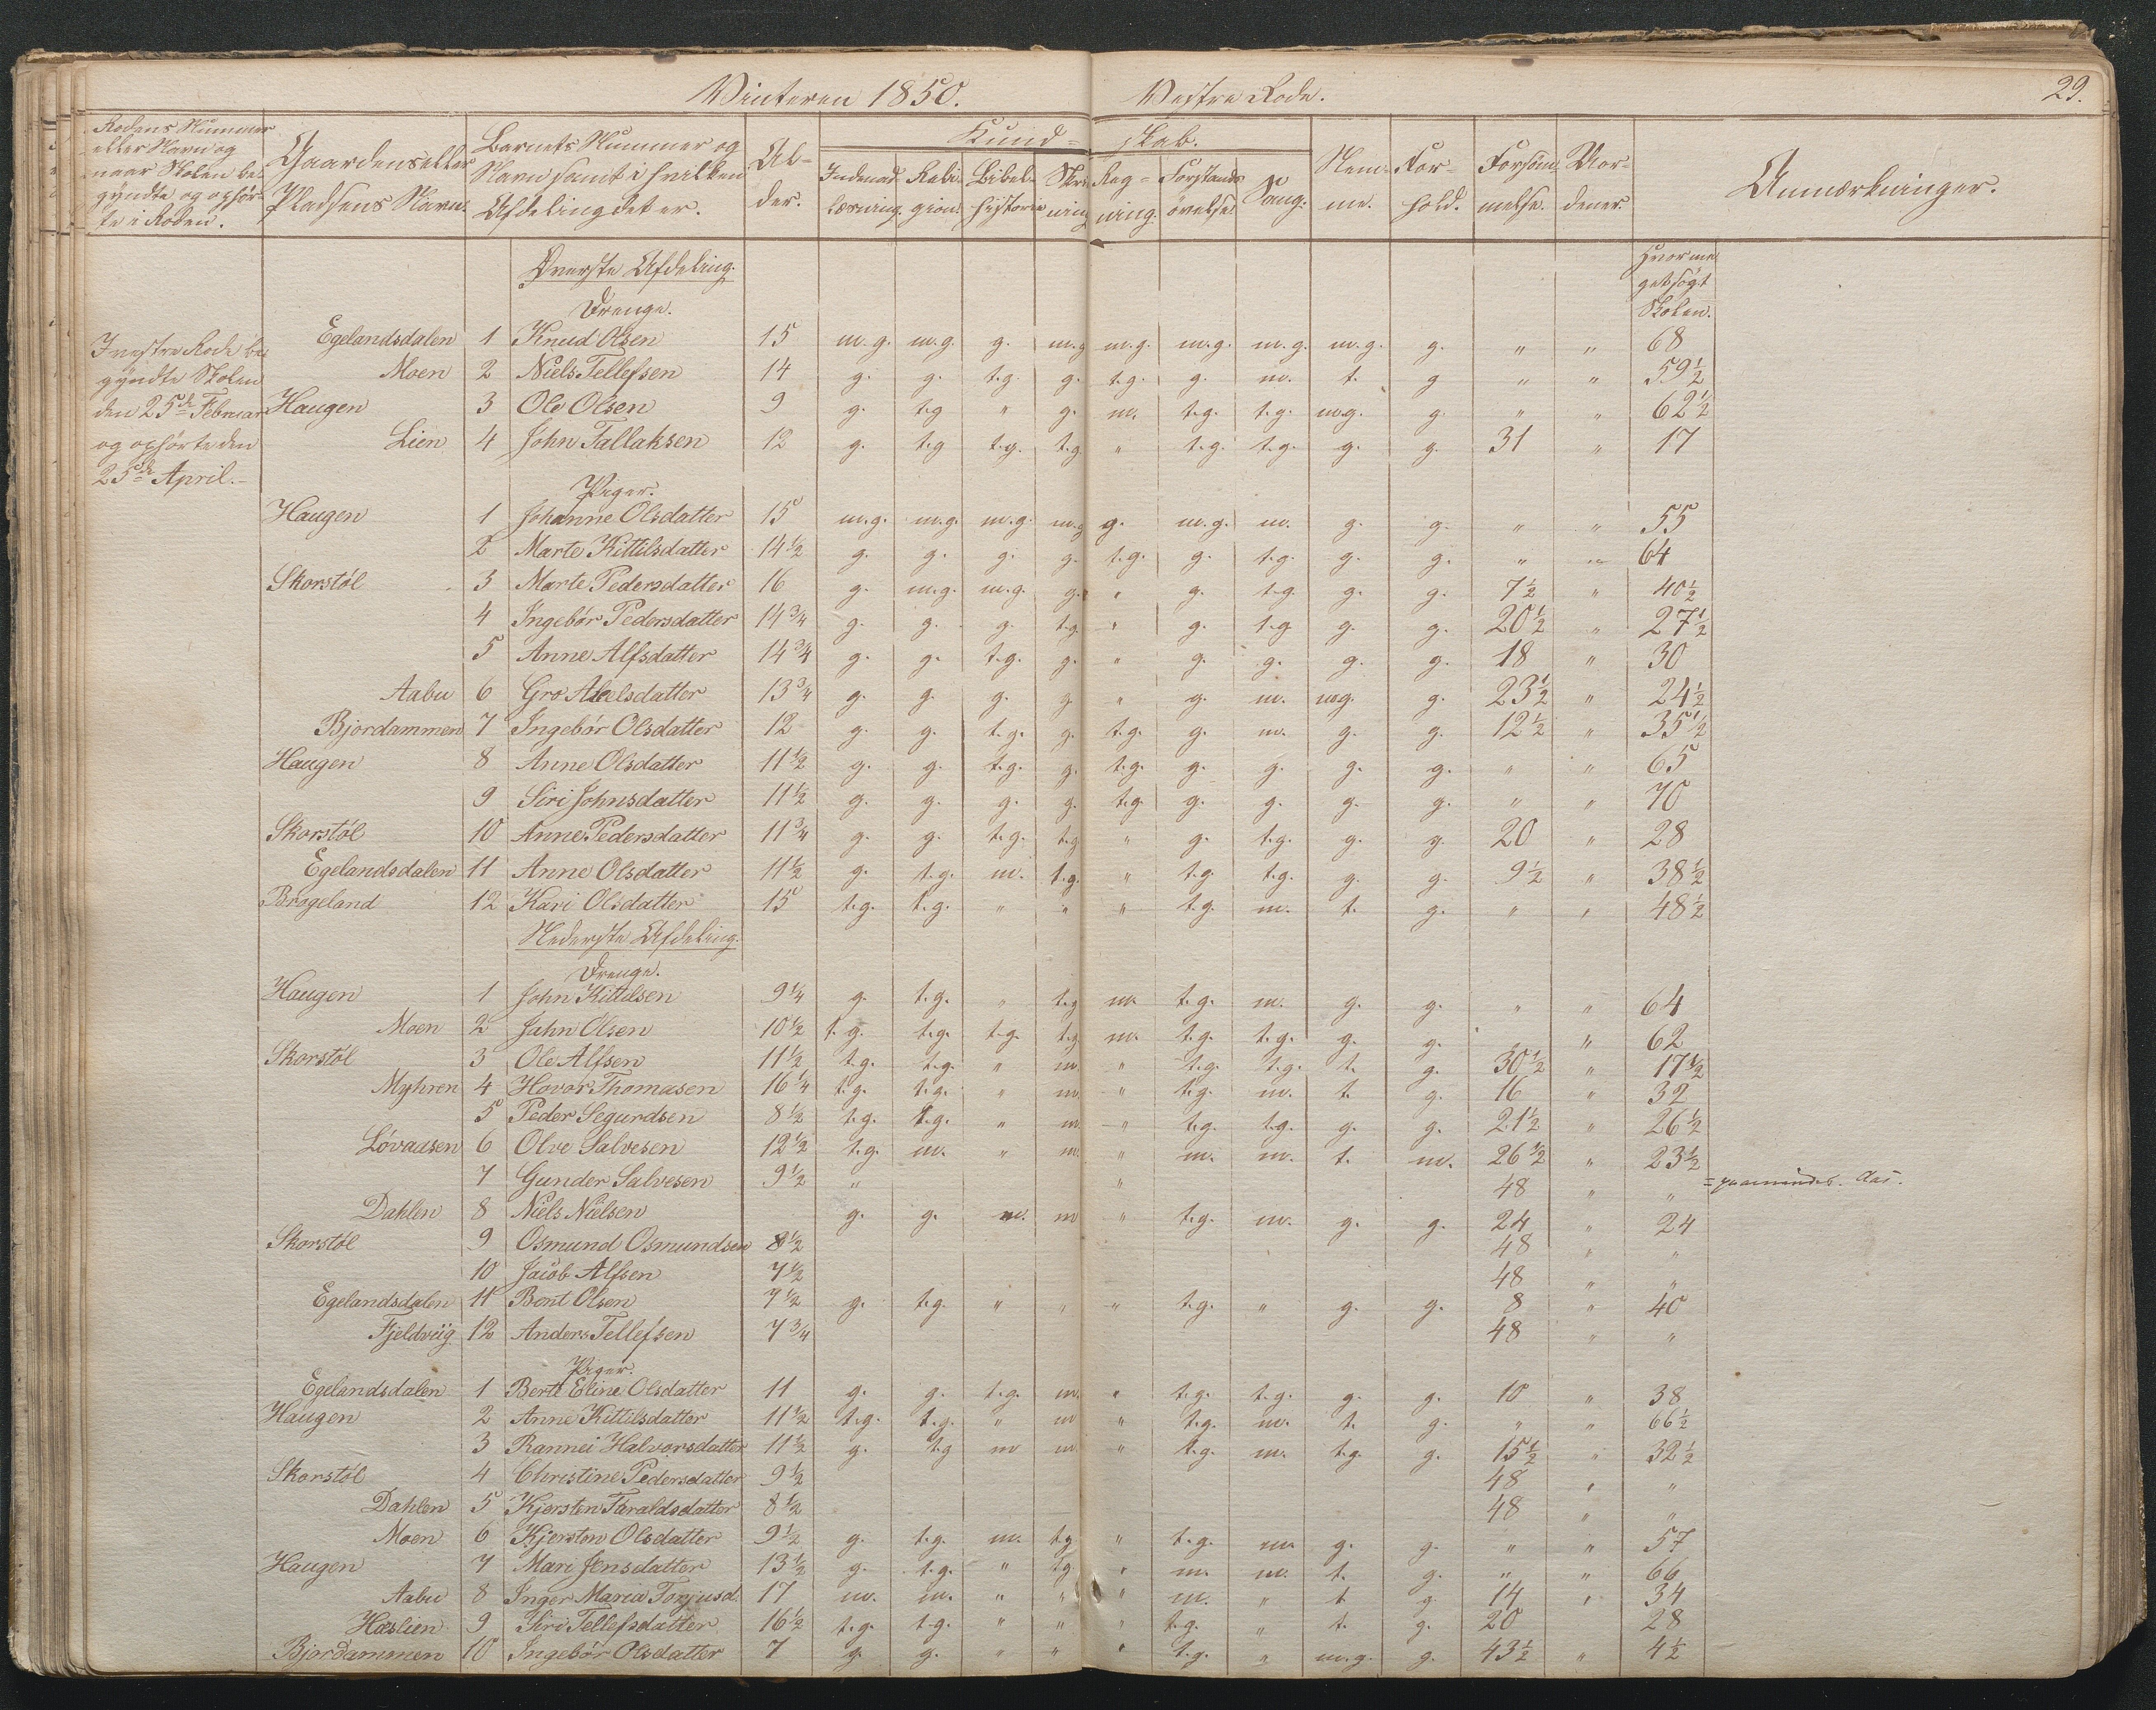 Vinteren 1850. Vestre Rode. 29.
Rodens Nummer eller Navn og naar Skolen begyndte og ophørte i Roden. Gaardens eller Pladsens Navn. Barnets Nummer og Navn samt i hvilken Afdeling det er. Alder. Kundskab. Nemme. Forhold. Forsømmelse. Anmærkninger.
Indenadlæsning. Religion. Bibelhistorie Skrivning Regning. Forstandsøvelse. Sang.
Øverste Afdeling.
Hvormeget søgt Skolen.
Drenge.
I vestre Rode begyndte Skolen den 25de Februar og ophørte den 25de April.
Egelandsdalen 1 Knud Olsen 15 m.g. m.g. g. m.g m.g. m.g. m.g. m.g. g. " " 68
Moen 2 Niels Tellefsen 14 g. g. t.g. g. t.g. g. m. t. g " " 59½
Haugen 3 Ole Olsen 9 g. t.g " g. m. t.g. t.g. m.g. g. " " 62½
Lien 4 John Tallaksen 12 g. t.g t.g. t.g. " t.g. t.g. g. g. 31 " 17
Piger.
Haugen 1 Johanne Olsdatter 15 m.g. m.g. m.g. m.g g. m.g. m. g. g. " " 55
2 Marte Kittilsdatter 14½ g. g. g. g. t.g. g. t.g. g. g. " " 64
Skorstøl 3 Marte Pedersdatter 16 g. m.g. m.g. g. " g. t.g. g. g. 7½ " 40½
4 Ingebør Pedersdatter 14¾ g. g. g. t.g. " g. t.g g. g. 20½ " 27½
5 Anne Alfsdatter 14¾ g. g. t.g. g. " g. g. g. g. 18 " 30
Aabu 6 Gro Abelsdatter 13¾ g. g. g. g " g. m. m.g. g. 23½ " 24½
Bjordammen 7 Ingebør Olsdatter 12 g. g. t.g. g. t.g. g. m. g. g. 12½ " 35½
Haugen 8 Anne Olsdatter 11½ g. g. t.g. g. t.g. g. g. g. g. " " 65
9 Siri Johnsdatter 11½ g. g. g. g. t.g. g. g. g. g. " " 70
Skorstøl 10 Anne Pedersdatter 11¾ g. g. t.g. t.g " g. t.g. g. g. 20 " 28
Egelandsdalen 11 Anne Olsdatter 11½ g. t.g. m. t.g. " t.g t.g. g. g. 9½ " 38½
Brageland 12 Kari Olsdatter 15 t.g. t.g. " " " t.g. m. t. g. " " 48½
Nederste Afdeling.
Drenge.
Haugen 1 John Kittilsen 9¼ g. t.g. " t.g m. t.g. m. g. g. " " 64
Moen 2 Jahn Olsen 10½ t.g. t.g. t.g. t.g m. t.g. t.g. g. g. " " 62
Skorstøl 3 Ole Alfsen 11½ t.g. t.g. " m. " t.g. t.g. t. g. 30½ " 17½
Myhren 4 Hovor Thomasen 16¼ t.g. t.g. " m. " t.g. m. t. g. 16 " 32
5 Peder Segurdsen 8½ t.g. t.g. " m. " t.g. t.g. g. g. 21½ " 26½
Lövaasen 6 Olve Salvesen 12½ t.g. m. " m. " m. m. t. m. 26½ " 23½
7 Gunder Salvesen 9½ " " 48 " "
Dahlen 8 Niels Nielsen g. g. m. m " t.g. m. g. g. 24 " 24
Skorstøl 9 Osmund Osmundsen 8½ 48 " "
10 Jacob Alfsen 7½ 48 " "
Egelandsdalen 11 Bent Olsen 7½ g. t.g. " " " t.g. " g. g. 8 " 40
Fjeldviig 12 Anders Tellefsen 7¾ 48 " "
Piger.
Egelandsdalen 1 Berte Eline Olsdatter 11 g. g. t.g. m. " t.g. t.g. g. g. 10 " 38
Haugen 2 Anne Kittilsdatter 11½ t.g. t.g. " m " t.g. m. t. g. " " 66½
3 Rannei Halvorsdatter 11½ g. t.g m m. " t.g. m. t.g. g. 15½ " 32½
Skorstøl 4 Christine Pedersdatter 9½ 48 " "
Dahlen 5 Kjersten Taraldsdatter 8½ 48 " "
Moen 6 Kjersten Olsdatter 9½ g. t.g. m. t.g " t.g. m. g. g. " " 57
Haugen 7 Mari Jensdatter 13½ g. t.g. " t.g. " m. m. t. g. " " 66
Aabu 8 Inger Maria Torjusd. 17 m. m. " " " m. " t g. 14 " 34
Hæslien 9 Siri Tellefsdatter 16½ t.g. t.g. " " " t.g. " t. g. 20 28
Bjordammen 10 Ingebør Olsdatter 7 g. g. " " " t.g. " m.g. g. 43½ " 4½